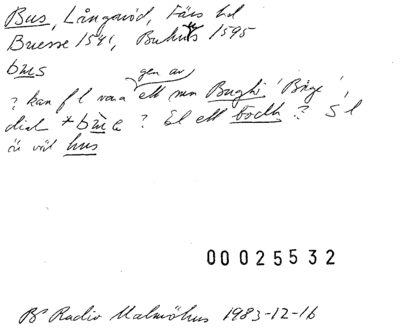 Bus, Långaröd, Färs hd
Buesse 1541, Buhus 1595
bus
gen av
? kan f l vara ett mn Bughi 'Båge',
dial *bue ? El ett bodh ? S l
är väl hus
00025532
BP Radio Malmöhus 1983-12-16